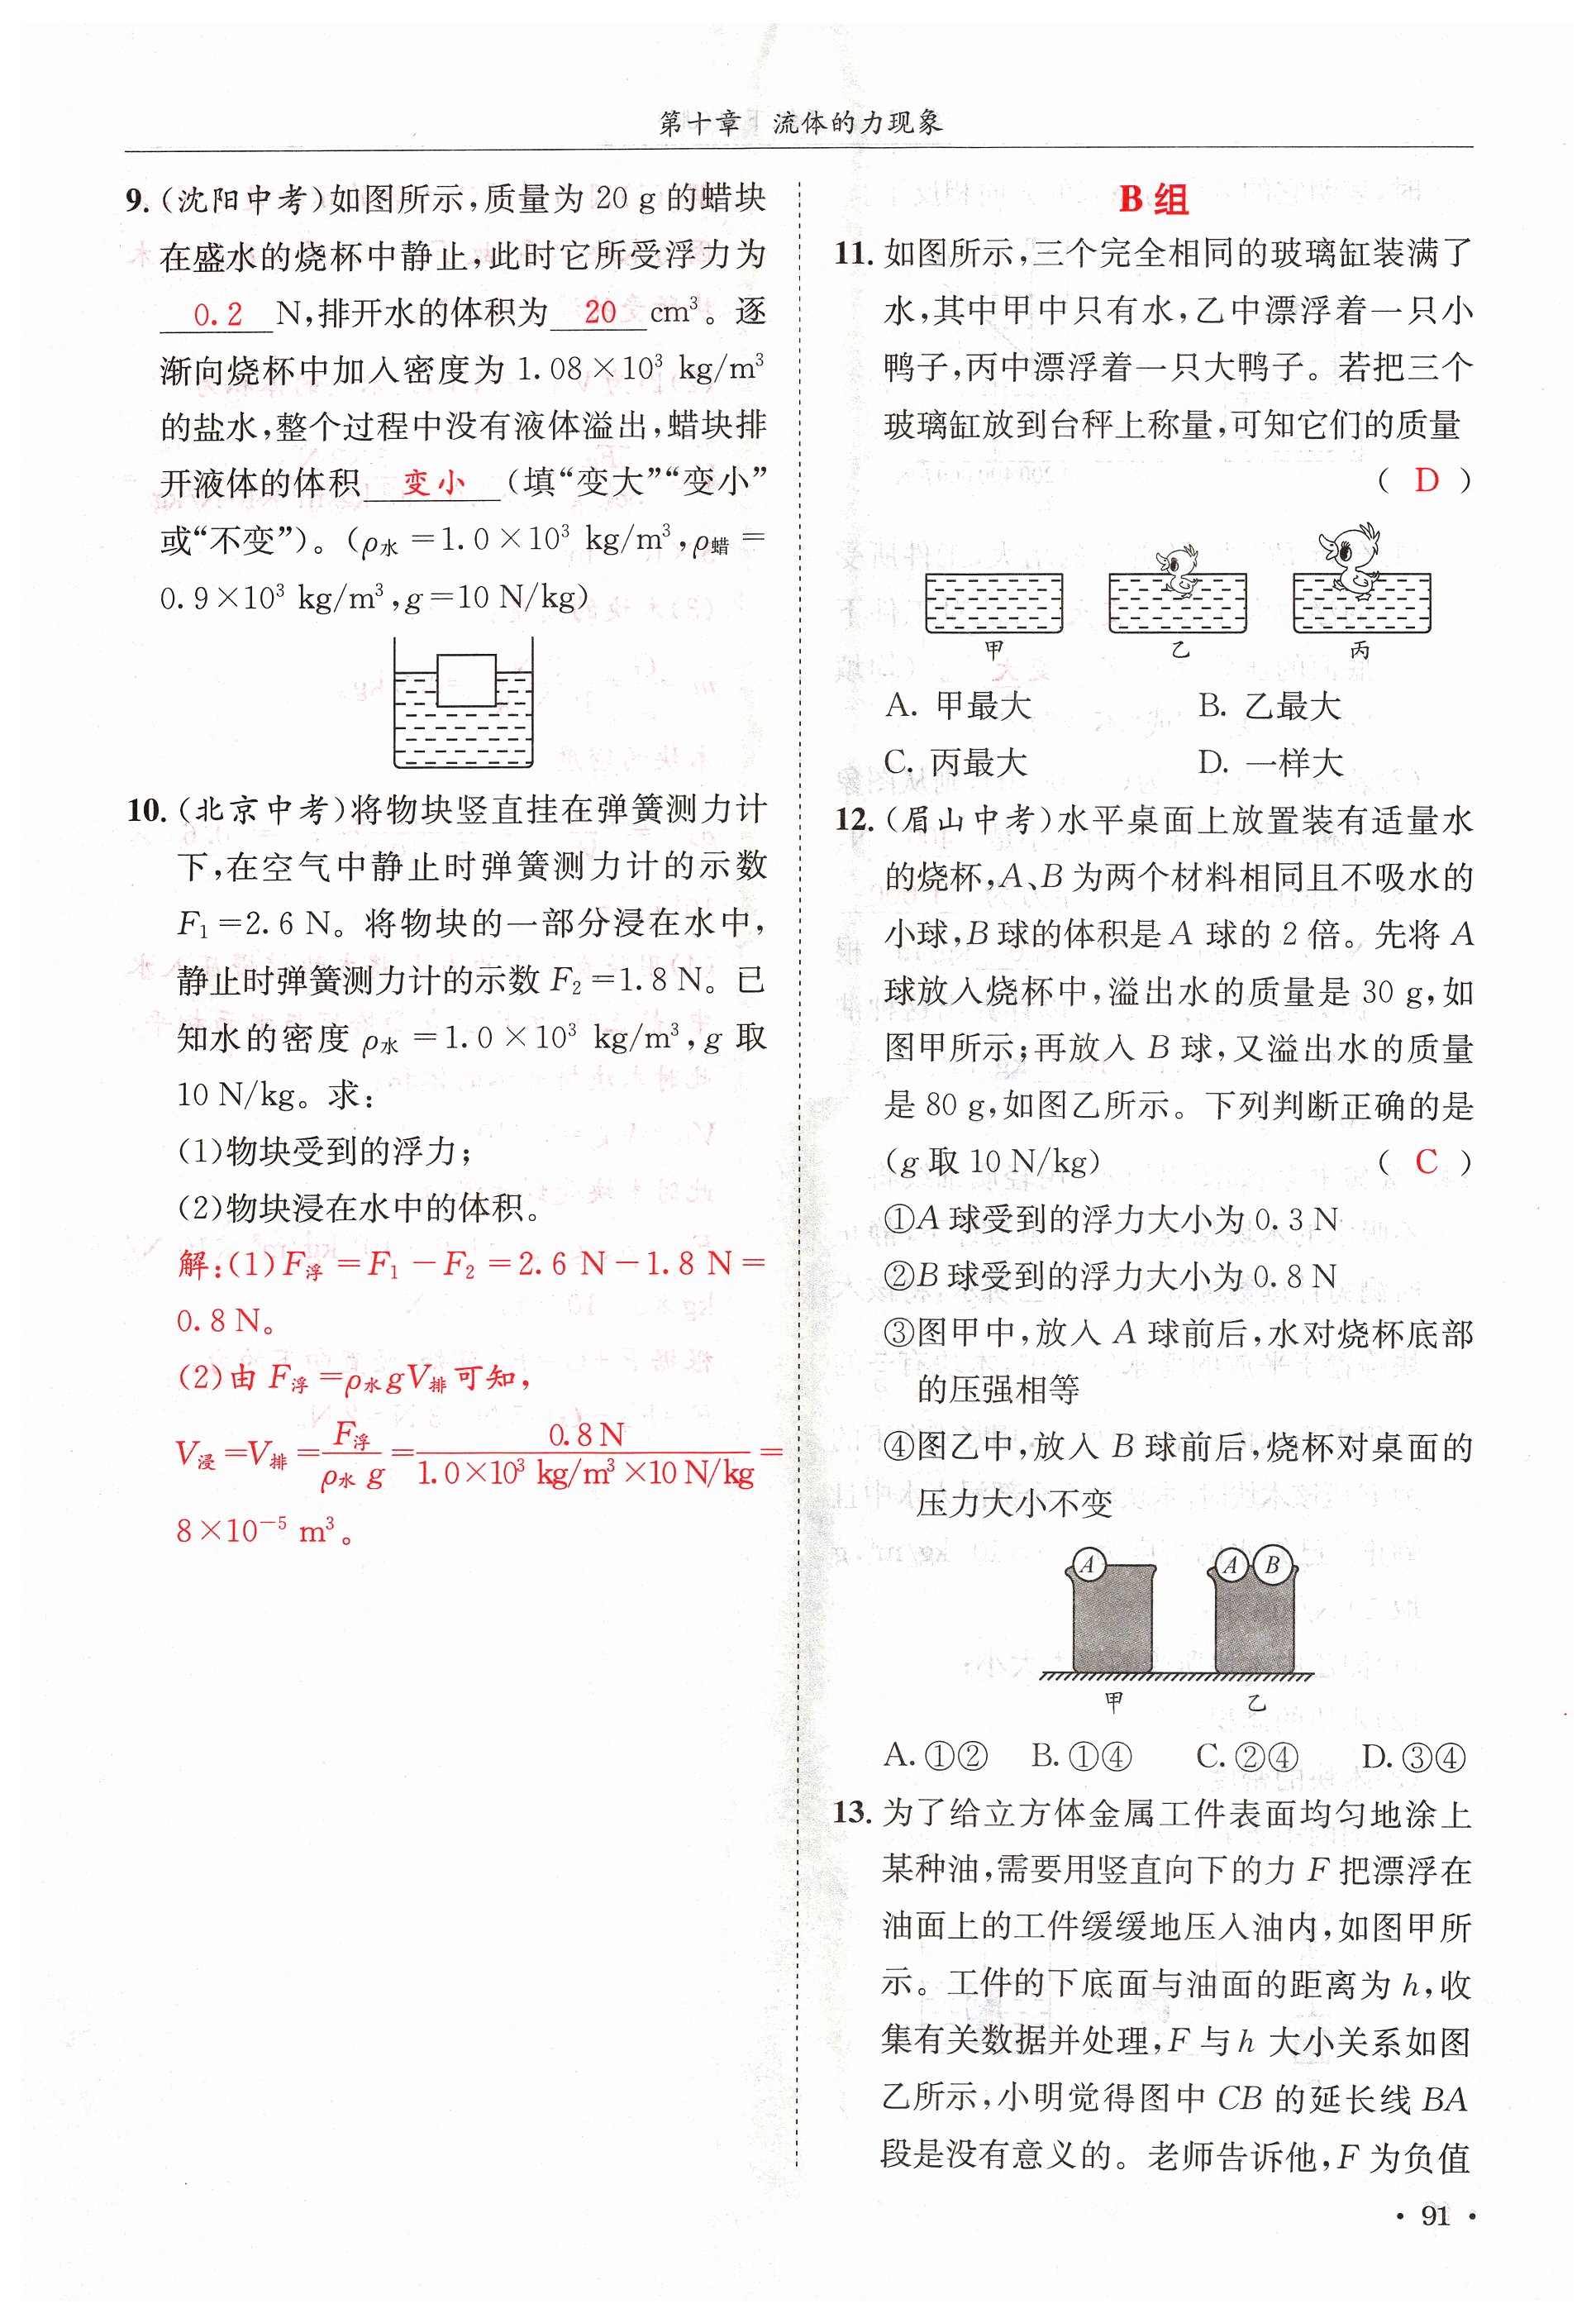 第十章 流体的力现象
9. (沈阳中考)如图所示,质量为 20 g 的蜡块
在盛水的烧杯中静止,此时它所受浮力为
0.2 N,排开水的体积为 20 cm³。逐
渐向烧杯中加入密度为 1.08×10³ kg/m³
的盐水,整个过程中没有液体溢出,蜡块排
开液体的体积 变小 (填“变大”“变小”
或“不变”)。(ρ水=1.0×10³ kg/m³,ρ蜡=
0.9×10³ kg/m³,g=10 N/kg)
10. (北京中考)将物块竖直挂在弹簧测力计
下,在空气中静止时弹簧测力计的示数
F₁=2.6 N。将物块的一部分浸在水中,
静止时弹簧测力计的示数 F₂=1.8 N。已
知水的密度 ρ水=1.0×10³ kg/m³,g 取
10 N/kg。求:
(1)物块受到的浮力;
(2)物块浸在水中的体积。
解:(1)F浮=F₁-F₂=2.6 N-1.8 N=
0.8 N。
(2)由 F浮=ρ水gV排可知,
V浸=V排=F浮/(ρ水 g)=0.8 N/(1.0×10³ kg/m³×10 N/kg)=
8×10⁻⁵ m³。
B 组
11. 如图所示,三个完全相同的玻璃缸装满了
水,其中甲中只有水,乙中漂浮着一只小
鸭子,丙中漂浮着一只大鸭子。若把三个
玻璃缸放到台秤上称量,可知它们的质量
( D )
甲 乙 丙
A. 甲最大 B. 乙最大
C. 丙最大 D. 一样大
12. (眉山中考)水平桌面上放置装有适量水
的烧杯,A、B 为两个材料相同且不吸水的
小球,B 球的体积是 A 球的 2 倍。先将 A
球放入烧杯中,溢出水的质量是 30 g,如
图甲所示;再放入 B 球,又溢出水的质量
是 80 g,如图乙所示。下列判断正确的是
(g 取 10 N/kg) ( C )
①A 球受到的浮力大小为 0.3 N
②B 球受到的浮力大小为 0.8 N
③图甲中,放入 A 球前后,水对烧杯底部
的压强相等
④图乙中,放入 B 球前后,烧杯对桌面的
压力大小不变
A A B
甲 乙
A. ①② B. ①④ C. ②④ D. ③④
13. 为了给立方体金属工件表面均匀地涂上
某种油,需要用竖直向下的力 F 把漂浮在
油面上的工件缓缓地压入油内,如图甲所
示。工件的下底面与油面的距离为 h,收
集有关数据并处理,F 与 h 大小关系如图
乙所示,小明觉得图中 CB 的延长线 BA
段是没有意义的。老师告诉他,F 为负值
· 91 ·